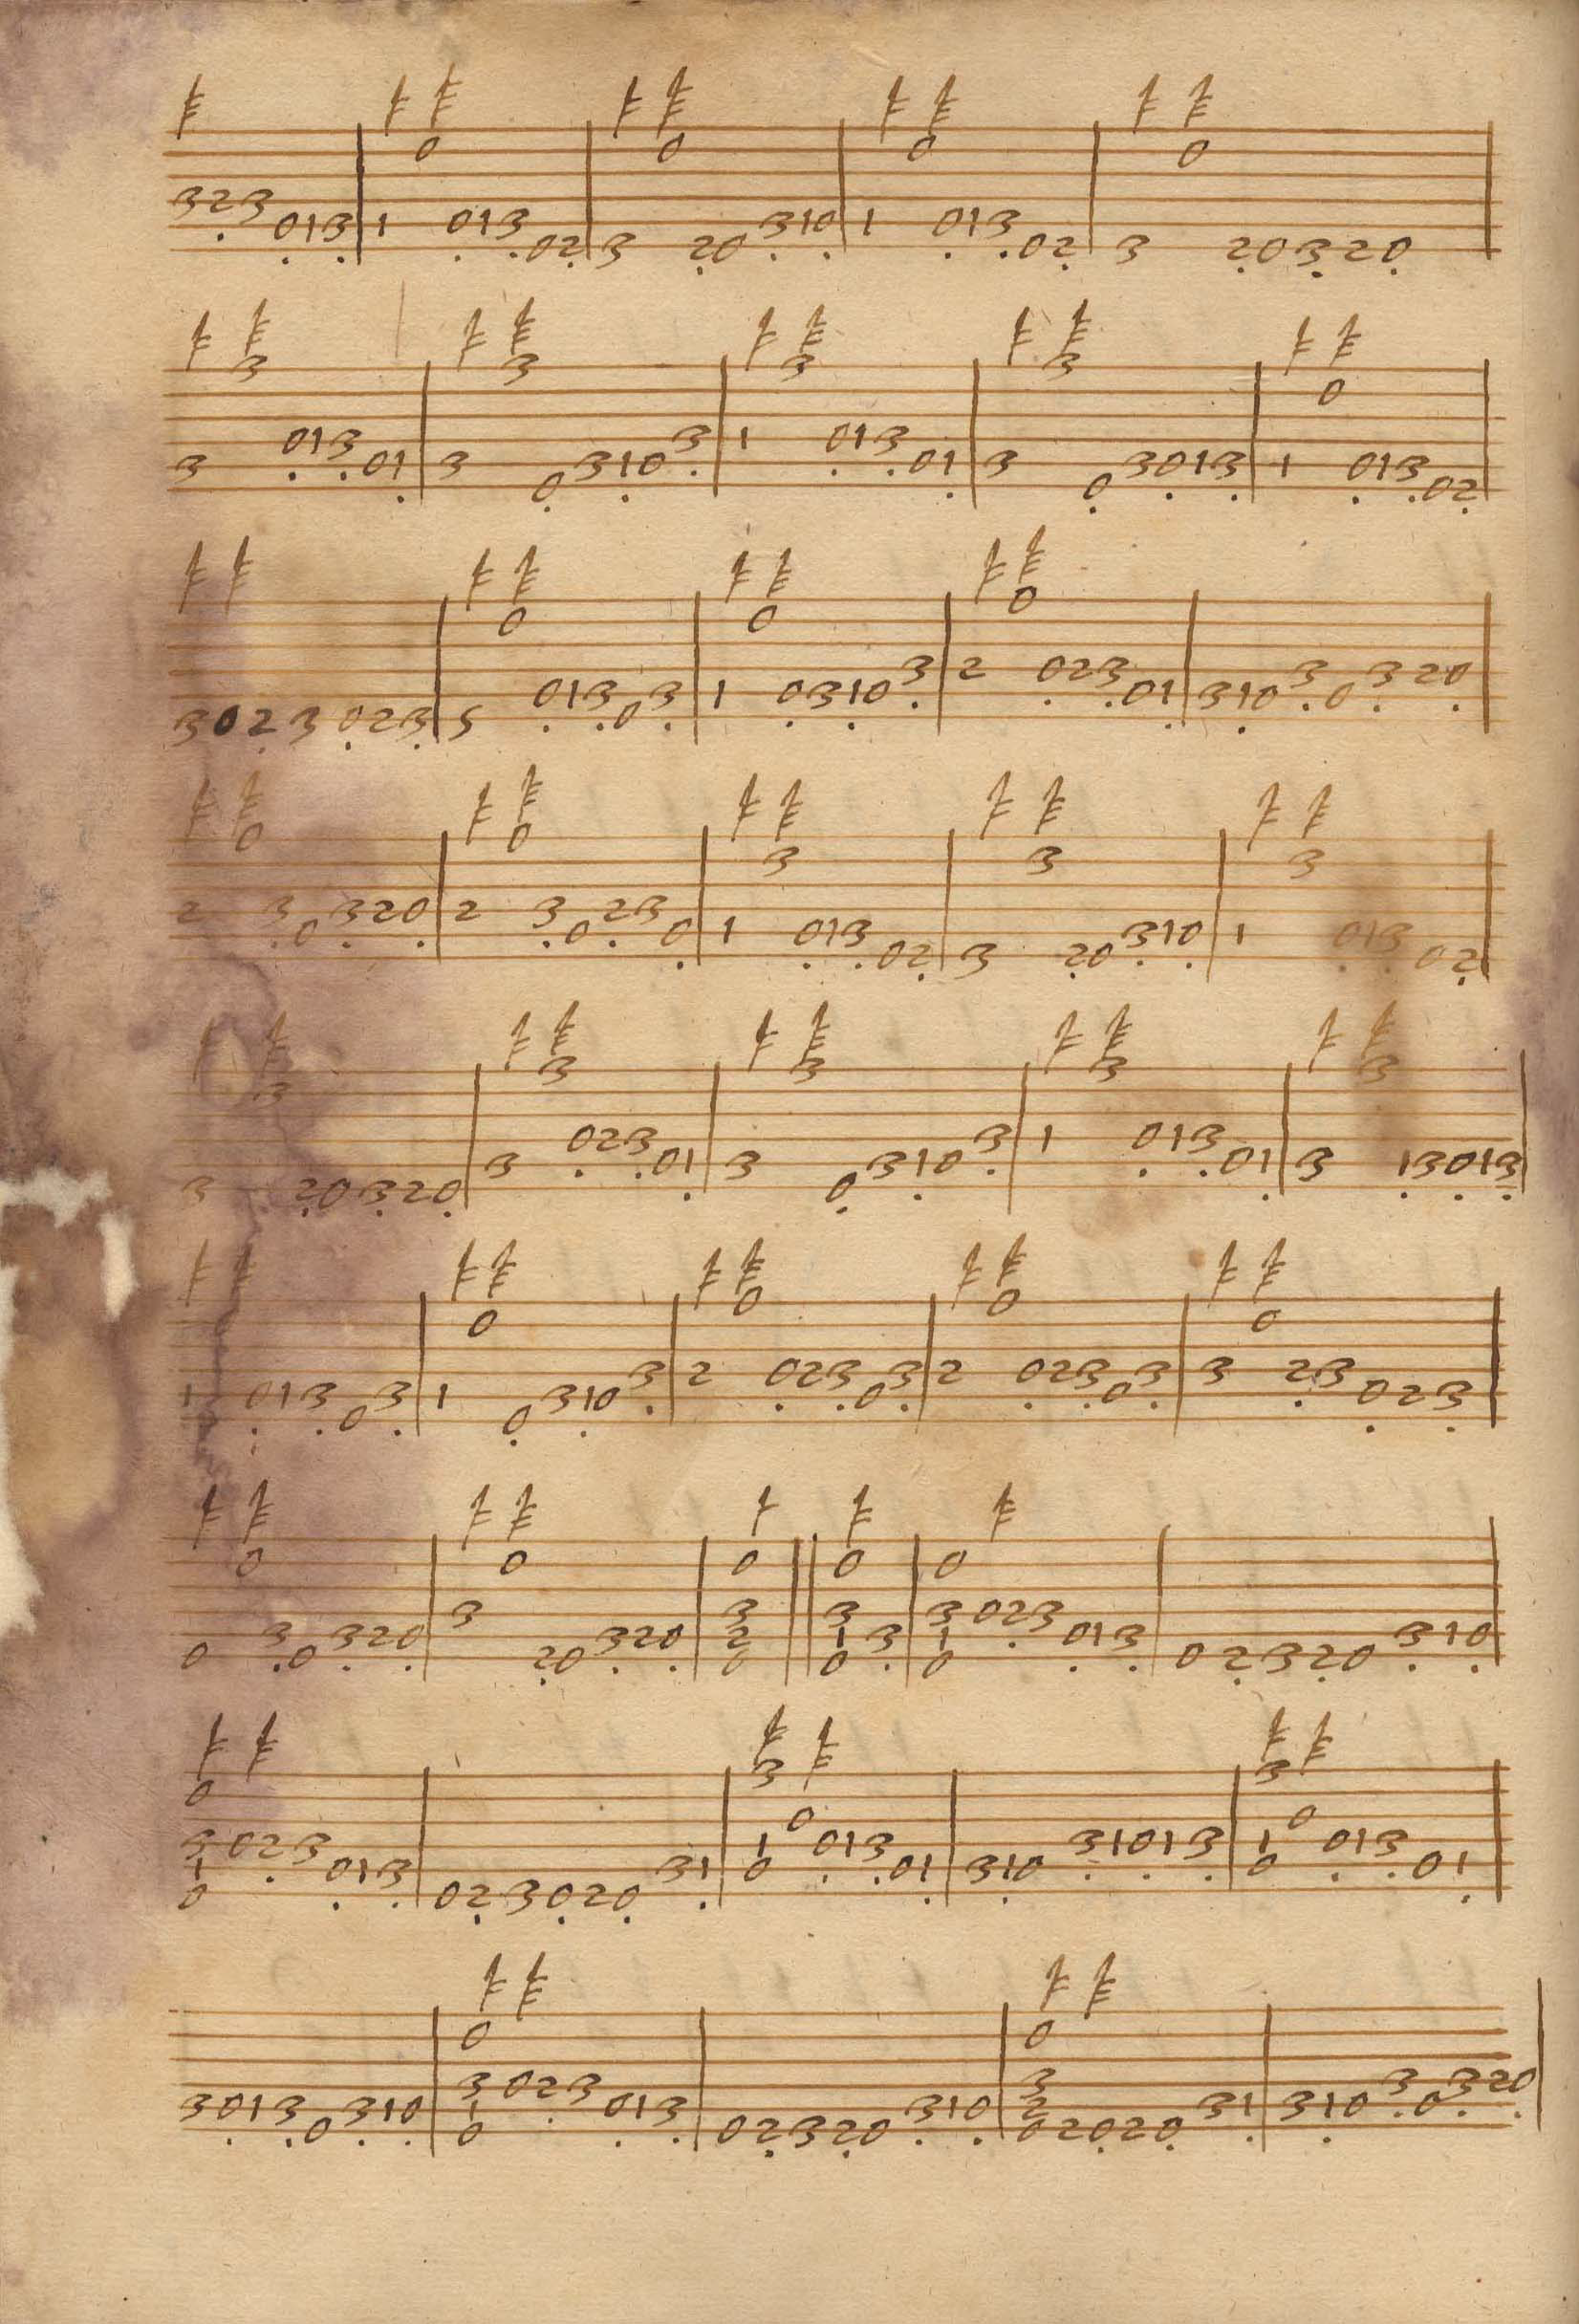 0 0 0 0
323 013 1 013 02 3 20 310 1 013 02 3 20320
3 3 3 3 0
3 013 01 3 0 310 3 1 013 01 3 0 3013 1 013 02
0 0 0
3023 023 5 013 0 3 1 0310 3 2 023 01 310 3 0 320
0 0 3 3 3
2 3 0 320 2 3 0 23 0 1 013 02 3 20 310 1 013 02
3 3 3 3 3
3 20320 3 023 01 3 0 310 3 1 013 01 3 13013
0 0 0 0
1 013 0 3 1 0 310 3 2 023 0 3 2 023 0 3 3 23 023
0 0 0 0 0
0 3 0 320 3 20 320 3 2 0 3 1 0 3 3 1 0 023 013 02320 310
0 3 0 3 0
3 1 0 023 013 023020 31 1 0 013 01 310 31013 1 0 013 01
0 0
3013 0 310 3 1 0 023 013 02320 310 3 2 0 2020 31 310 3 0 320